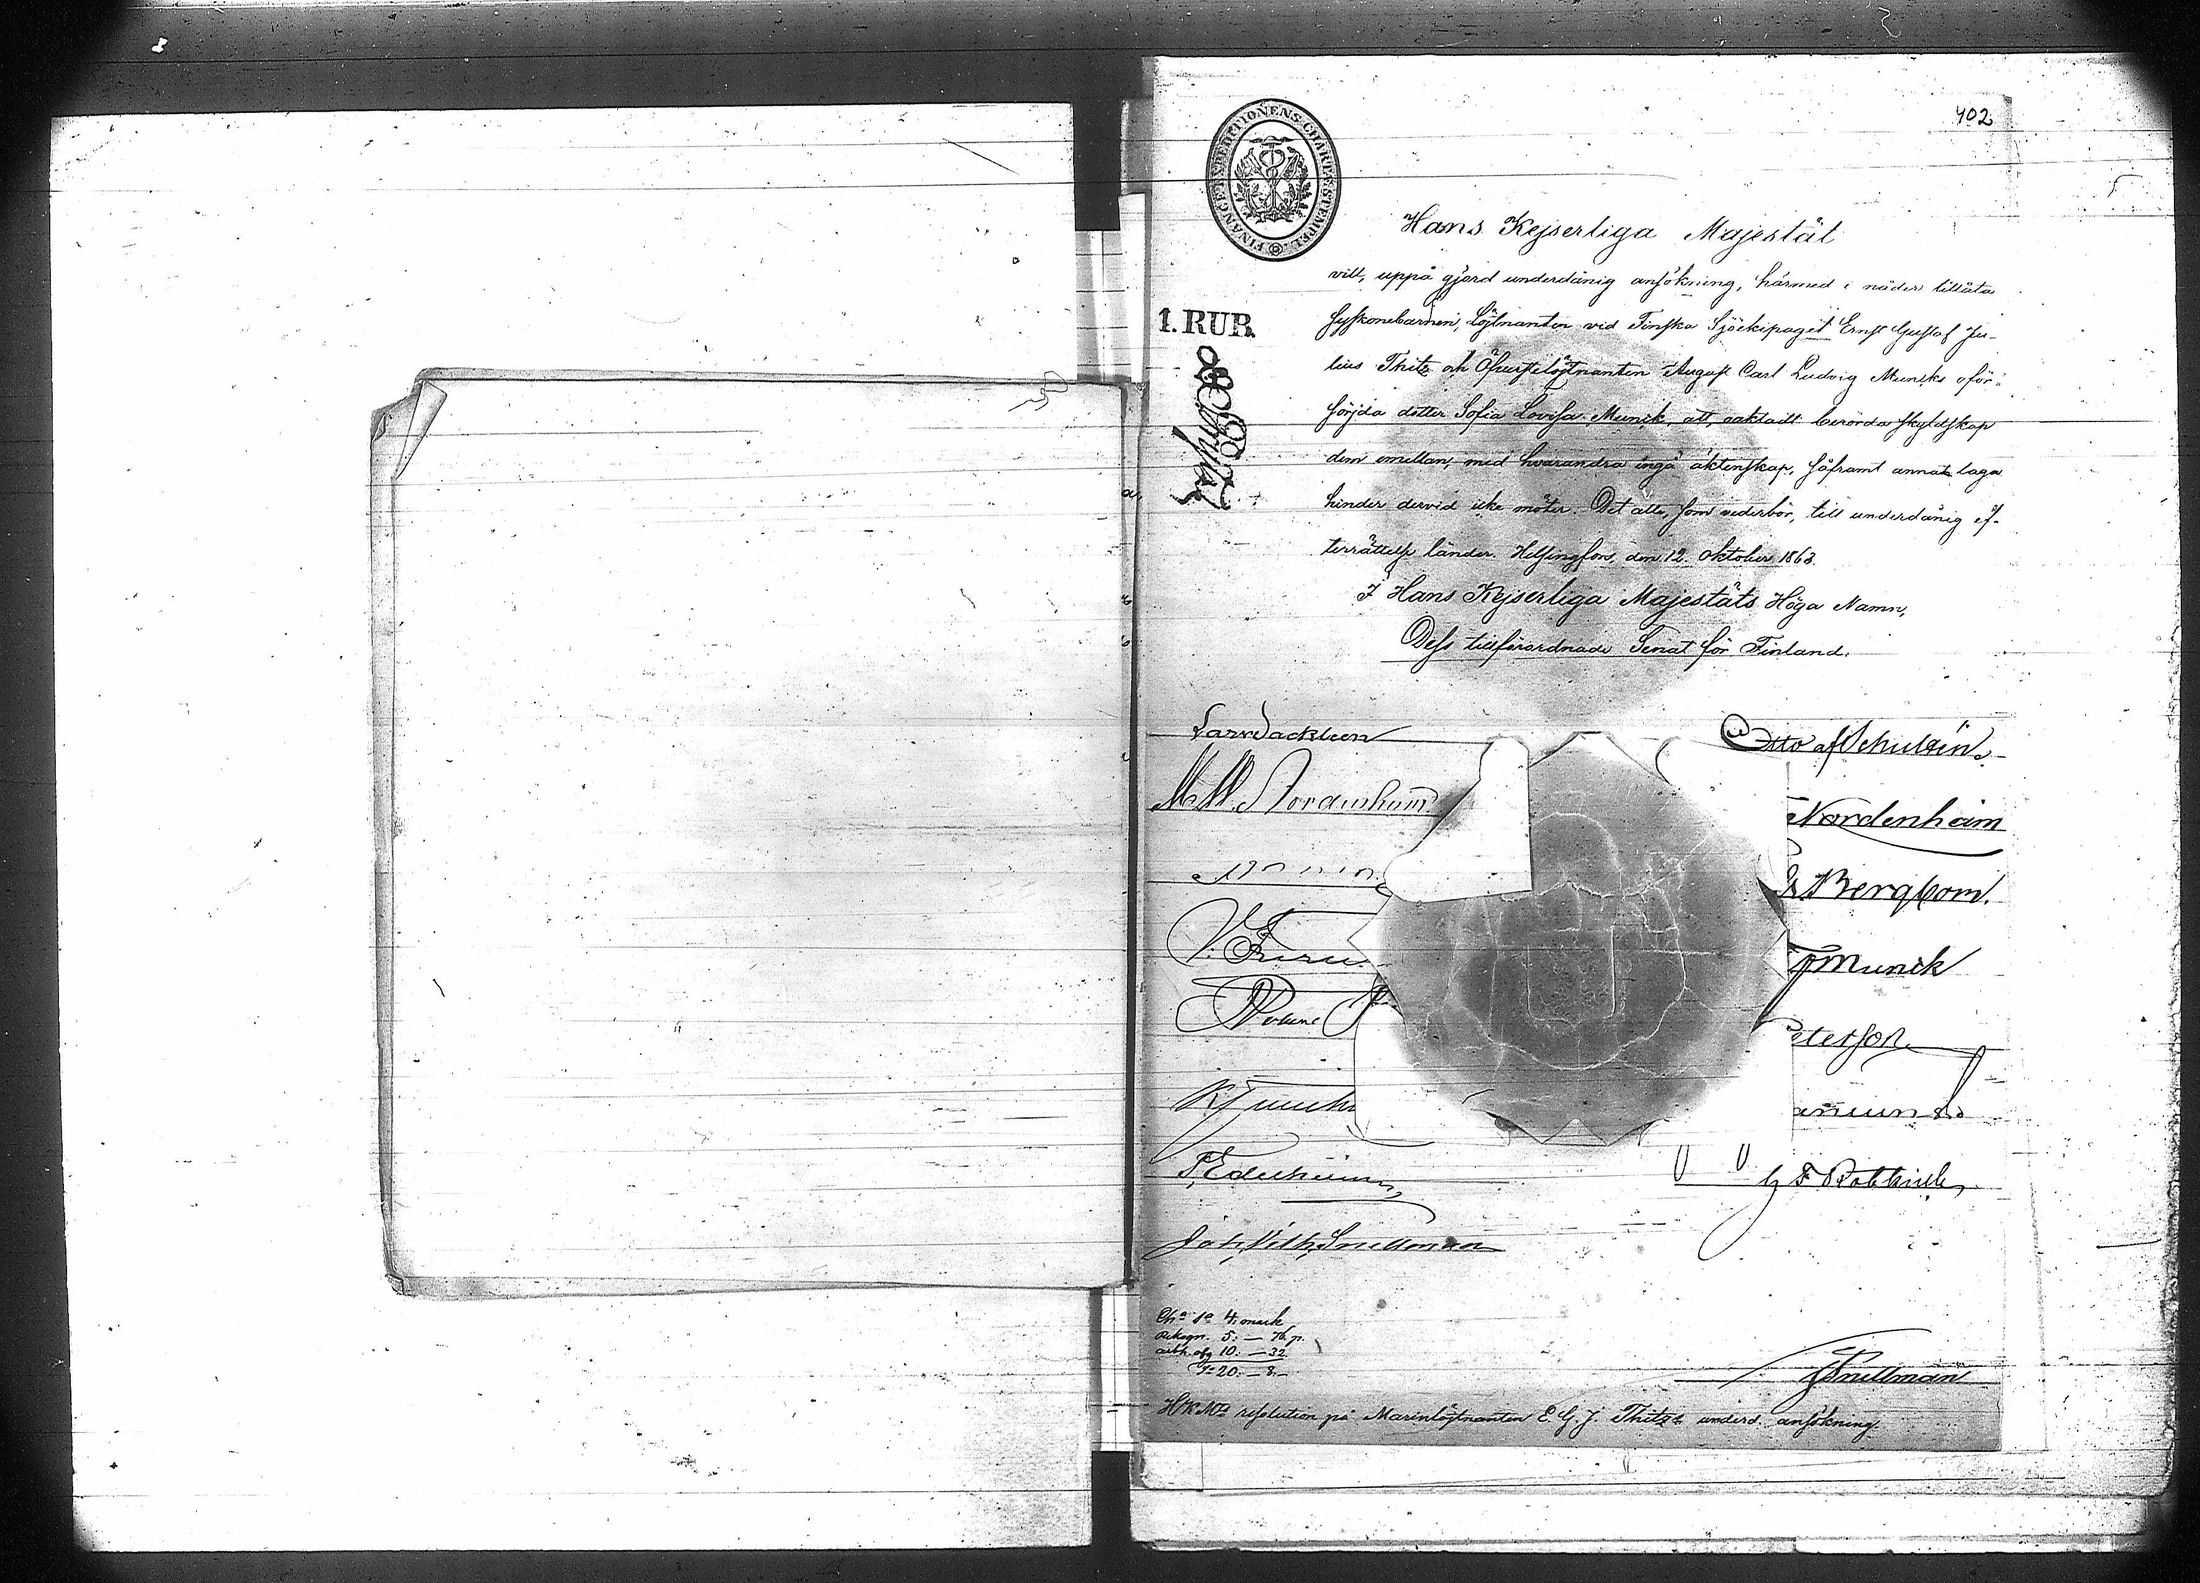 402
FINANCE EXPEDITIONENS CHARTÆ STEMPEL
1. RUB.
Hans Kejserliga Majestät
vill, uppå gjord underdånig ansökning, härmed i nåder tillåta
syskonebarnen, Löjtnanten vid Finska Sjöekipaget Ernst Gustaf Ju-
lius Thitz och Öfverstelöjtnanten August Carl Ludvig Muncks oför-
sörjda dotter Sofia Lovisa Munck, att, oaktadt berörda skyldskap
dem emellan, med hvarandra ingå äktenskap, såframt annat laga
hinder dervid icke möter. Det alle, som vederbör, till underdånig ef-
terrättelse länder. Helsingfors, den 12. Oktober 1863.
I Hans Kejserliga Majestäts Höga Namn,
Dess tillförordnade Senat för Finland.
Lars Sackleen
Otto af Schultén
M. W. Nordenheim
Nordenheim
Bergbom
V. Furu
Munck
eterson
P. Ederheim
Joh. Vilh. Snellman
Cha Sa 4. mark
Rekogn. 5: — 76 p.
arbh. afg 10: — 32
Sa 20: — 8 —
Snellman
H K Mts resolution på Marinlöjtnanten E. G. J. Thitz's underd. ansökning